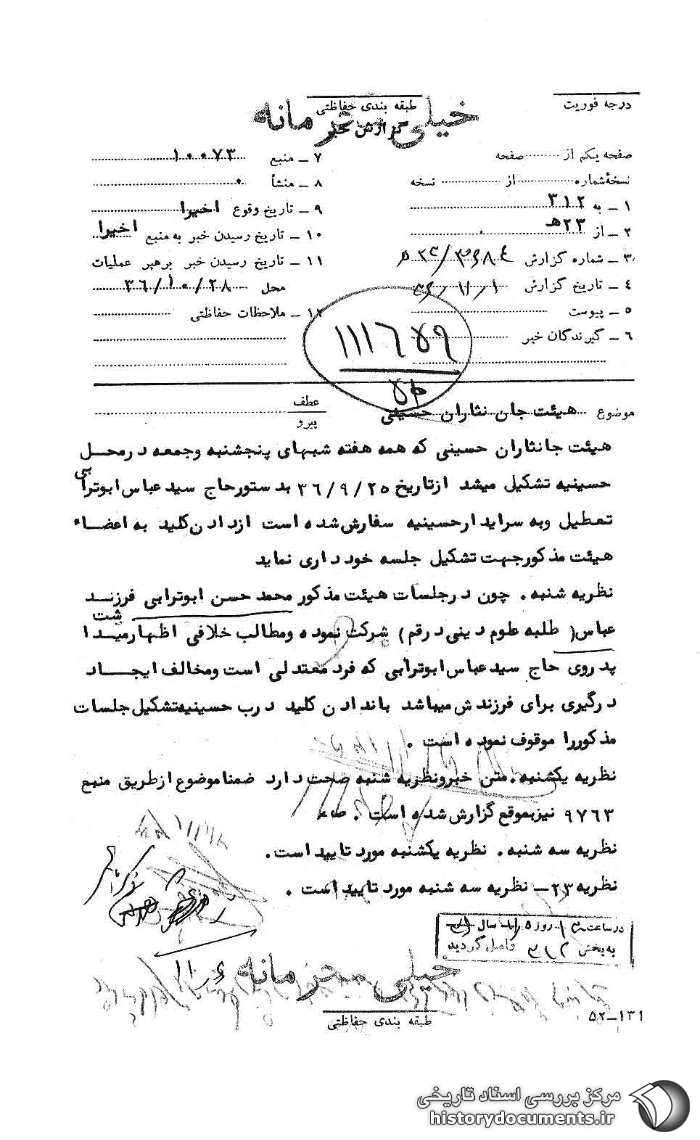 درجه فوریت
طبقه بندی حفاظتی
خیلی محرمانه
گزارش خبر
صفحه یکم از صفحه
نسخه شماره از نسخه
۱ ـ به ۳۱۲
۲ ـ از ۲۳هـ
۳ ـ شماره گزارش
۴ ـ تاریخ گزارش
۵ ـ پیوست
۶ ـ گیرندگان خبر
۷ ـ منبع ۱۰۰۷۳
۸ ـ منشأ ۰
۹ ـ تاریخ وقوع اخیرا
۱۰ ـ تاریخ رسیدن خبر به منبع اخیرا
۱۱ ـ تاریخ رسیدن خبر برهبر عملیات
محل ۳۶/۱۰/۲۸
۱۲ ـ ملاحظات حفاظتی
موضوع هیئت جان نثاران حسینی
عطف
پیرو
هیئت جانثاران حسینی که همه هفته شبهای پنجشنبه وجمعه درمحل
حسینیه تشکیل میشد ازتاریخ ۳۶/۹/۲۵ بدستورحاج سیدعباس ابوترابی
تعطیل وبه سرایدارحسینیه سفارش شده است ازدادن کلید به اعضاء
هیئت مذکورجهت تشکیل جلسه خودداری نماید
نظریه شنبه. چون درجلسات هیئت مذکور محمد حسن ابوترابی فرزند
عباس( طلبه علوم دینی درقم) شرکت نموده ومطالب خلافی اظهارمیداشت
پدروی حاج سیدعباس ابوترابی که فرد معتدلی است ومخالف ایجاد
درگیری برای فرزندش میباشد باندادن کلید درب حسینیه تشکیل جلسات
مذکوررا موقوف نموده است .
نظریه یکشنبه. متن خبرونظریه شنبه صحت دارد ضمناموضوع ازطریق منبع
۹۷۶۳ نیزبموقع گزارش شده است .
نظریه سه شنبه. نظریه یکشنبه مورد تاییداست.
نظریه ۲۳ـ نظریه سه شنبه مورد تاییداست .
در ساعت روز سال
به بخش ۳۱۲ واصل گردید
خیلی محرمانه
طبقه بندی حفاظتی
۵۲ـ۱۳۱
مرکز بررسی اسناد تاریخی
historydocuments.ir